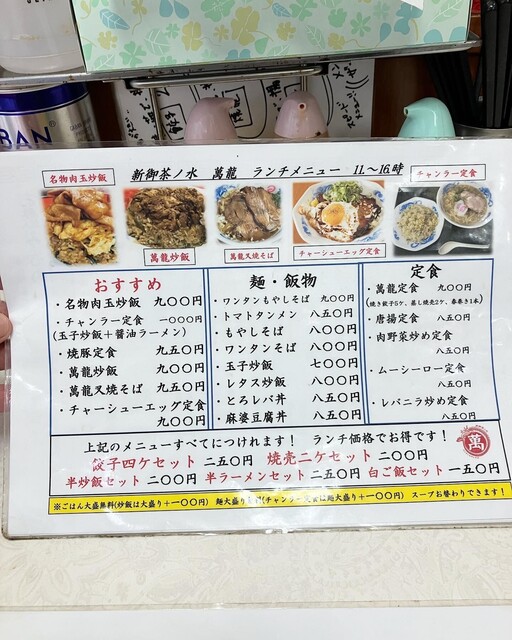 RAN
新御茶ノ水 萬龍 ランチメニュー 11.～16.時
名物肉玉炒飯
チャンラー定食
萬龍炒飯
萬龍叉焼そば
チャーシューエッグ定食
おすすめ
・名物肉玉炒飯 九〇〇円
・チャンラー定食 一〇〇〇円
(玉子炒飯＋醤油ラーメン)
・焼豚定食 九五〇円
・萬龍炒飯 九五〇円
・萬龍叉焼そば 九五〇円
・チャーシューエッグ定食
九〇〇円
麺・飯物
・ワンタンもやしそば 九〇〇円
・トマトタンメン 八五〇円
・もやしそば 八〇〇円
・ワンタンそば 八〇〇円
・玉子炒飯 七〇〇円
・レタス炒飯 八〇〇円
・とろレバ丼 八五〇円
・麻婆豆腐丼 八五〇円
定食
・萬龍定食 九〇〇円
(焼き餃子5ケ、蒸し焼売2ケ、春巻き1本)
・唐揚定食 八五〇円
・肉野菜炒め定食
八五〇円
・ムーシーロー定食
八五〇円
・レバニラ炒め定食
八五〇円
上記のメニューすべてにつけれます！ ランチ価格でお得です！
餃子四ケセット 二五〇円 焼売二ケセット 二〇〇円
半炒飯セット 二〇〇円 半ラーメンセット 二五〇円 白ご飯セット 一五〇円
萬
※ごはん大盛無料(炒飯は大盛り＋一〇〇円) 麺大盛り(チャンラー定食は麺大盛り＋一〇〇円) スープお替わりできます！